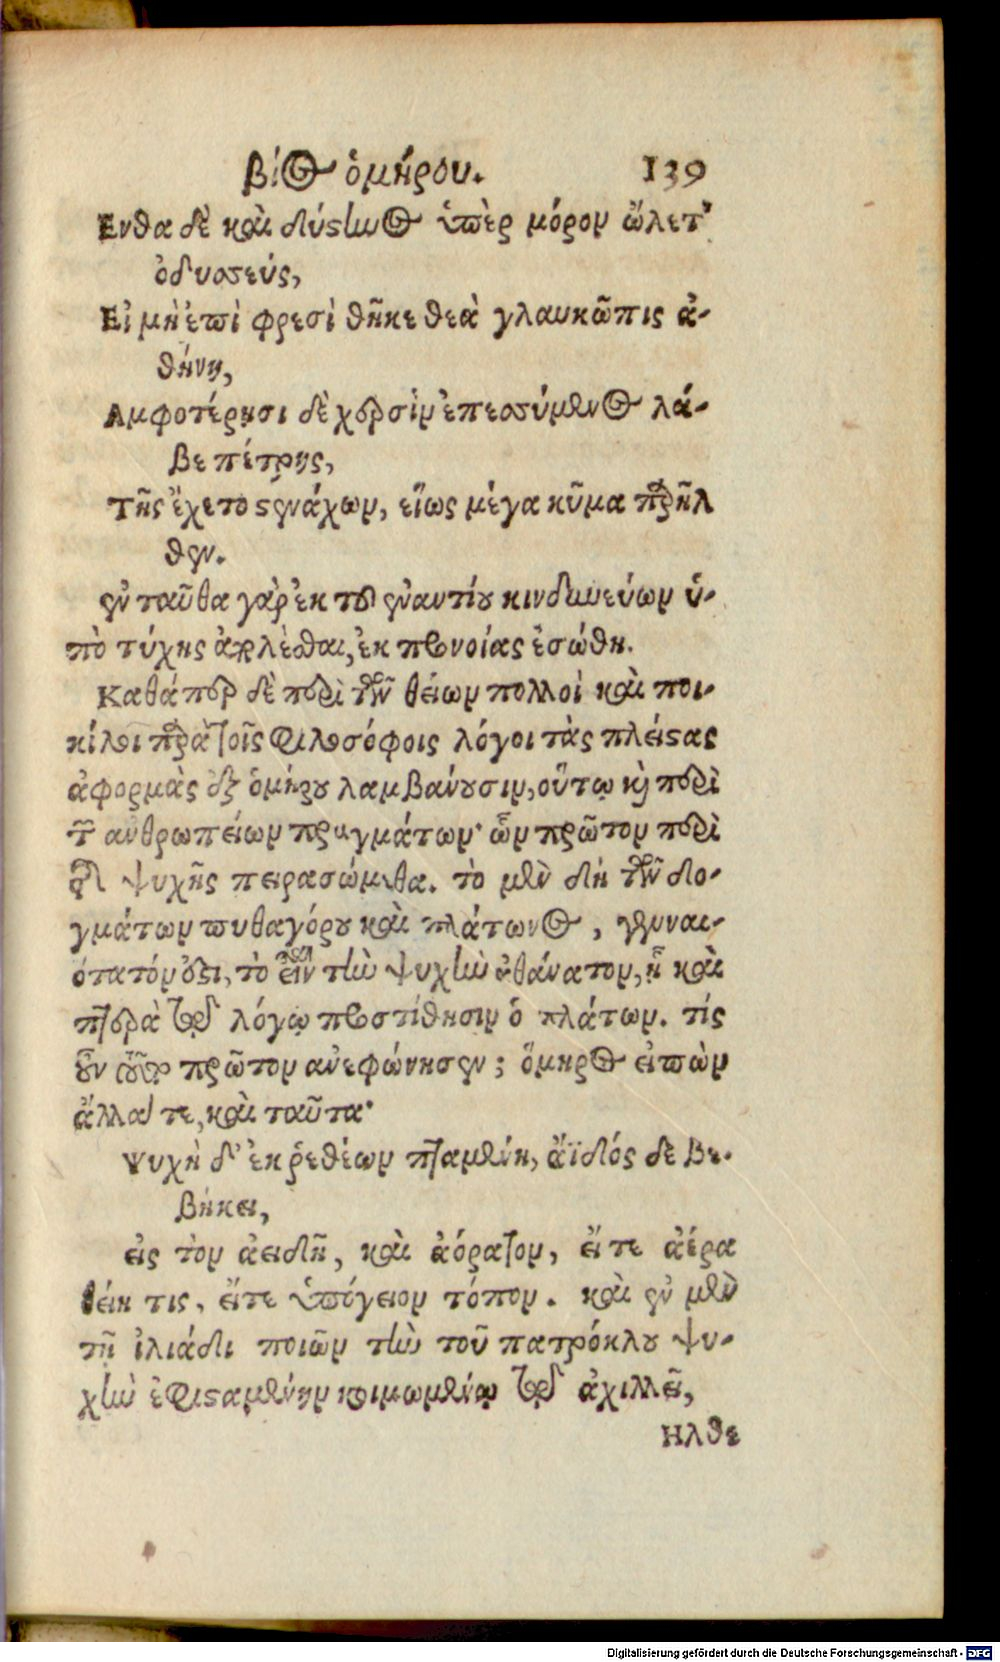 βίος ὁμήρου. 139
Ενθα δὲ καὶ δύστηνος ὑπὲρ μόρον ὤλετ'
ὀδυσσεύς,
Εἰ μὴ ἐπὶ φρεσὶ θῆκε θεὰ γλαυκῶπις ἀ-
θήνη,
Αμφοτέρῃσι δὲ χερσὶν ἐπεσσύμενος λά-
βε πέτρης,
Τῆς ἔχετο στενάχων, εἵως μέγα κῦμα παρῆλ
θεν.
ἐνταῦθα γὰρ ἐκ τοῦ ἐναντίου κινδυνεύων ὑ-
πὸ τύχης ἀπολέσθαι, ἐκ προνοίας ἐσώθη.
Καθάπερ δὲ περὶ τῶν θείων πολλοὶ καὶ ποι-
κίλοι παρὰ τοῖς φιλοσόφοις λόγοι τὰς πλείστας
ἀφορμὰς ἐξ ὁμήρου λαμβάνουσιν, οὕτω καὶ περὶ
τῶν ανθρωπείων πραγμάτων· ὧν πρῶτον περὶ
τῆς ψυχῆς πειρασώμεθα. τὸ μὲν δὴ τῶν δο-
γμάτων πυθαγόρου καὶ πλάτωνος, γενναι-
ότατόν ἐστι, τὸ εἶναι τὴν ψυχὴν ἀθάνατον, ᾗ καὶ
πτερὰ τῷ λόγῳ προστίθησιν ὁ πλάτων. τίς
οὖν τοῦτο πρῶτον ανεφώνησεν; ὅμηρος εἰπὼν
ἄλλα τε, καὶ ταῦτα·
Ψυχὴ δ' ἐκ ῥεθέων πταμένη, ἄϊδός δε βε-
βήκει,
εἰς τὸν ἀειδῆ, καὶ ἀόρατον, εἴτε ἀέρα
θείη τις, εἴτε ὑπόγειον τόπον. καὶ ἐν μὲν
τῇ ἰλιάδι ποιῶν τὴν τοῦ πατρόκλου ψυ-
χὴν ἐφισταμένην κοιμωμένῳ τῷ ἀχιλλεῖ,
Ηλθε
Digitalisierung gefördert durch die Deutsche Forschungsgemeinschaft - DFG